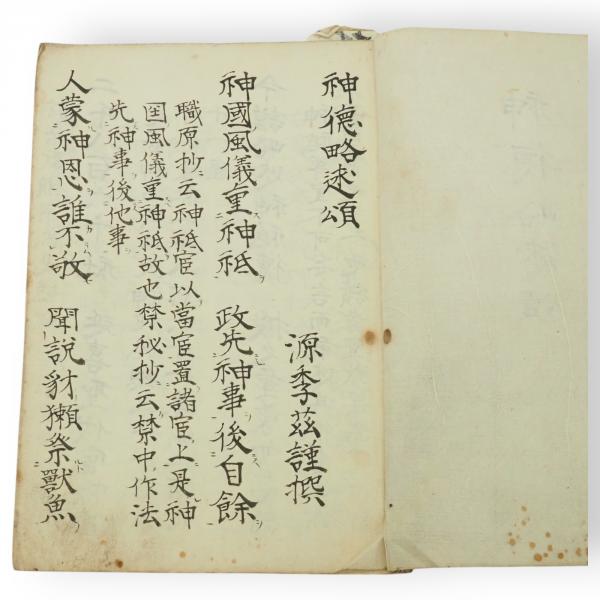 神德略述頌
源季茲謹撰
神國風儀重神祗　政先神事後自餘
職原抄云神祗官以當官置諸官上是神
国風儀重神祗故也禁秘抄云禁中作法
先神事後他事
人蒙神恩誰不敬　聞説豺獺祭獸魚